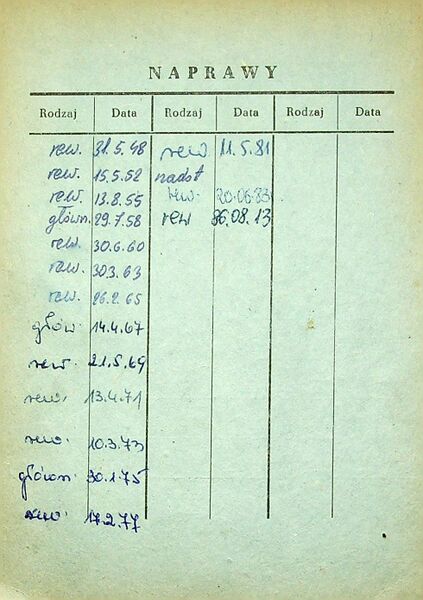 NAPRAWY
Rodzaj Data Rodzaj Data Rodzaj Data
rew. 31.5.48 rew 11.5.81
rew. 15.5.52 nadst
rew. 13.8.55 rew. 20.06.83
główn. 29.7.58 rew 86.08.13
rew. 30.6.60
rew. 30.3.63
rew. 26.2.65
głów. 14.4.67
rew. 21.5.69
rew. 13.4.71
rew. 10.3.73
główn. 30.1.75
rew. 17.2.77